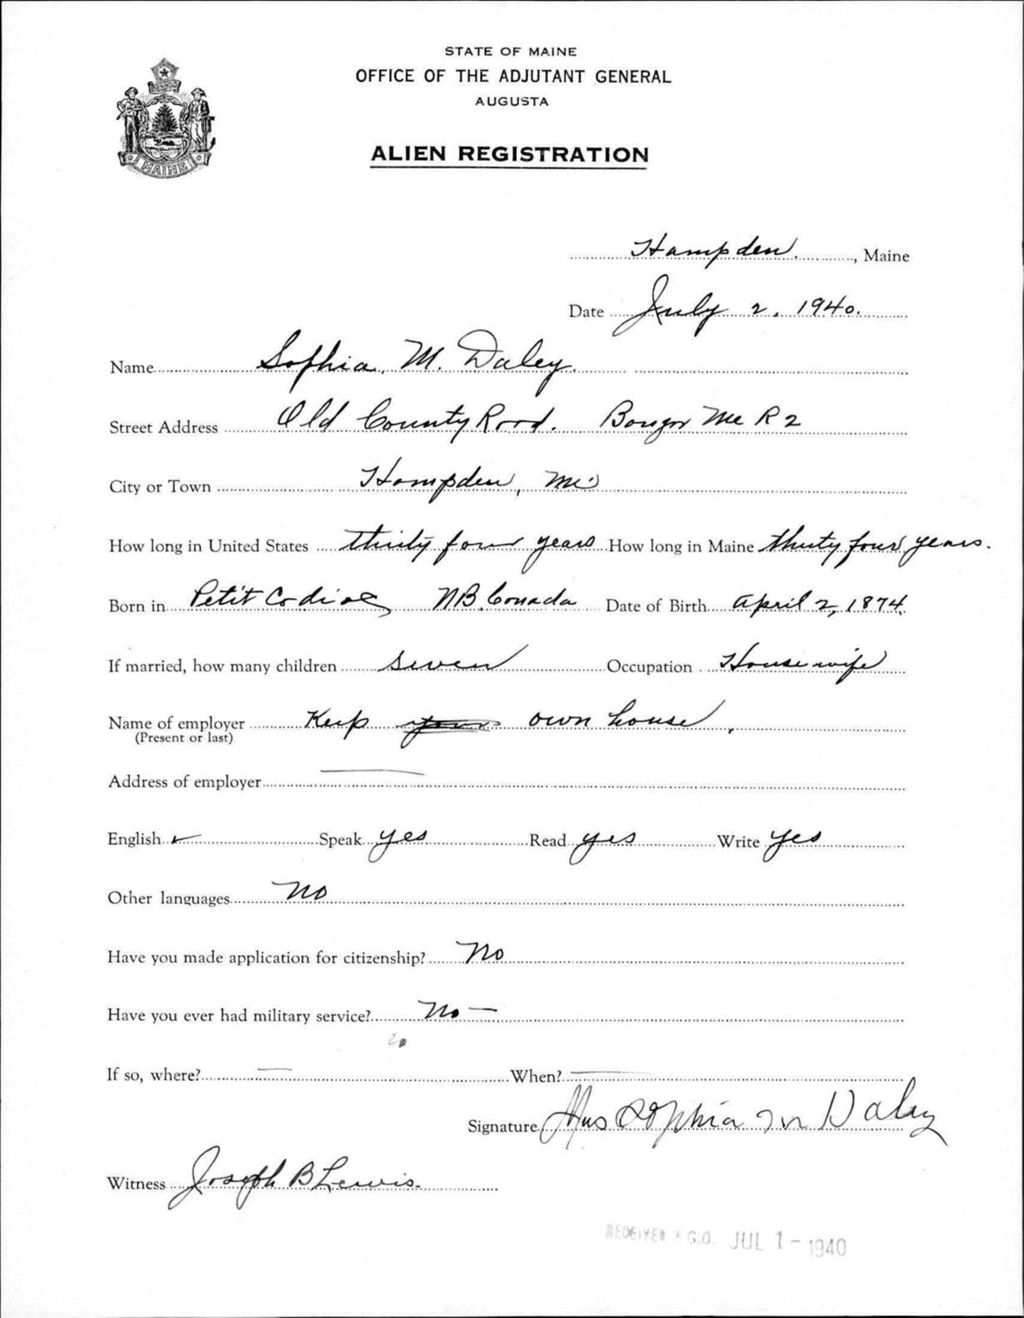 STATE OF MAINE
OFFICE OF THE ADJUTANT GENERAL
AUGUSTA
ALIEN REGISTRATION
MAINE
Hampden, Maine
Date July 2, 1940.
Name Sophia. M. Daley.
Street Address Old County Road. Bangor Me R 2
City or Town Hampden, Me
How long in United States thirty four years How long in Maine thirty four years.
Born in Petit Codiac NB. Canada Date of Birth April 2, 1874.
If married, how many children seven Occupation Housewife
Name of employer Keep your own house.
(Present or last)
Address of employer
English ✓ Speak yes Read yes Write yes
Other languages No
Have you made application for citizenship? No
Have you ever had military service? No —
If so, where? — When? —
Signature Mrs Sophia M Daley
Witness Joseph B Lewis.
RECEIVED A.G.O. JUL 1 - 1940